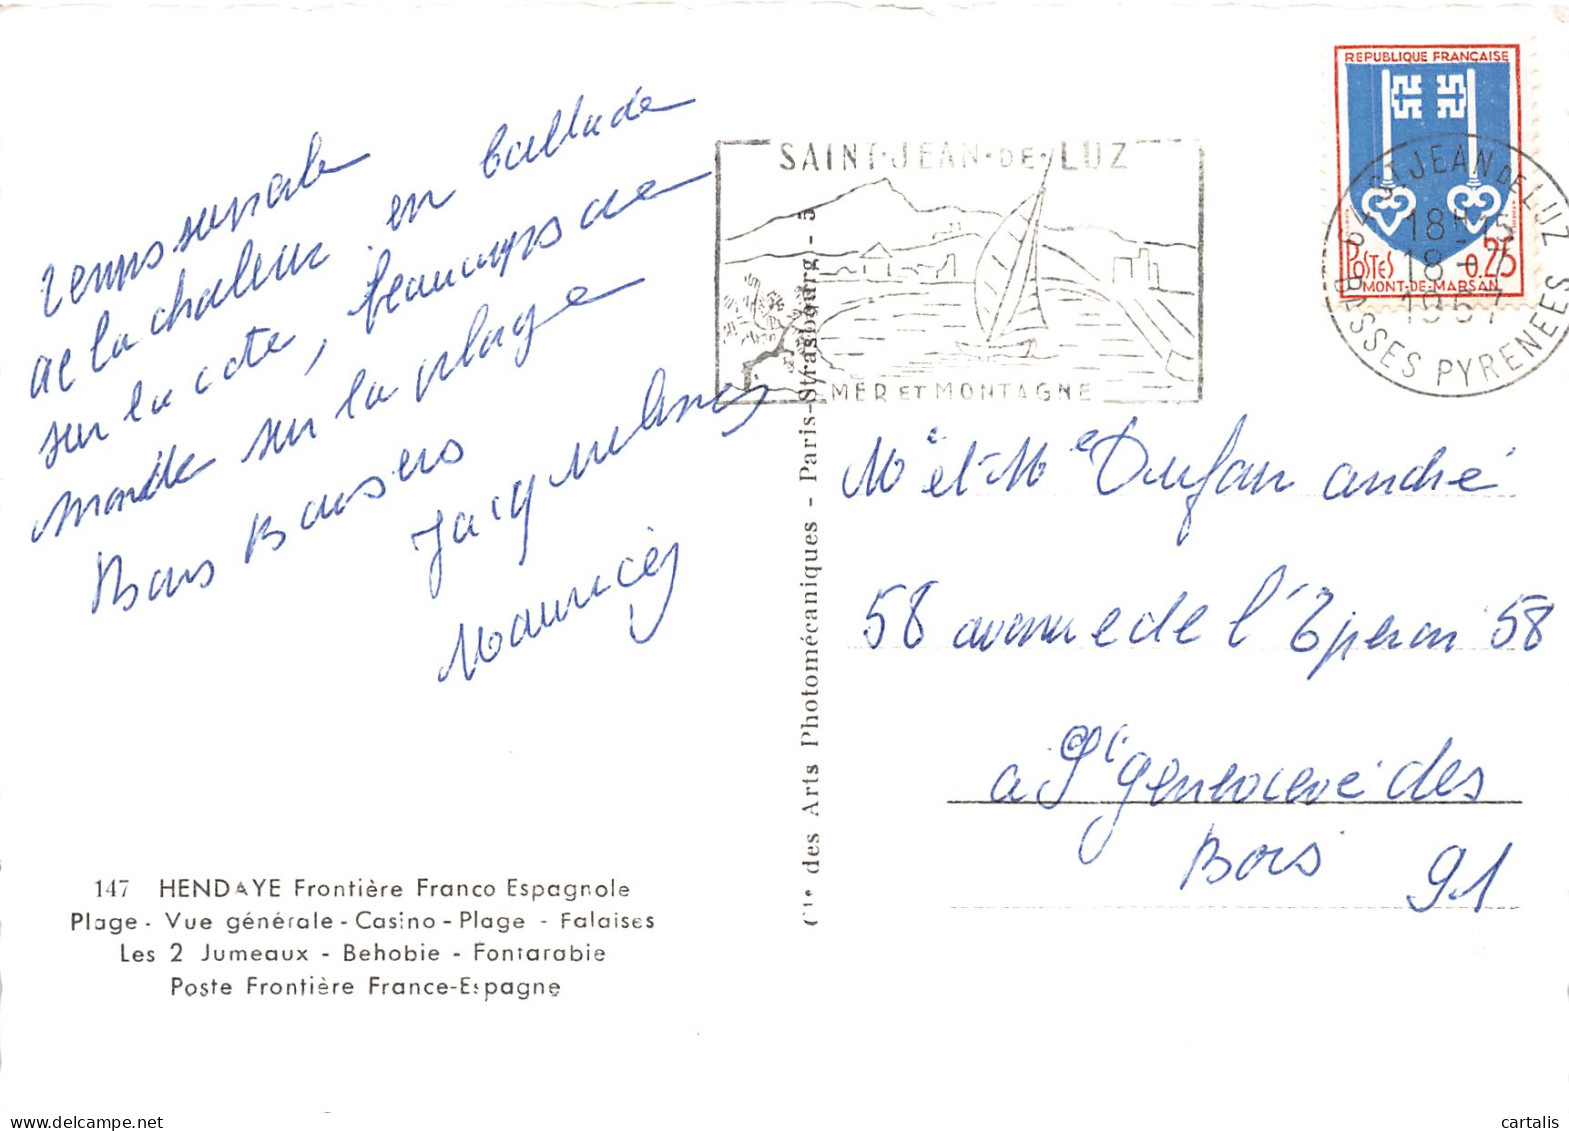 Temps superbe
de la chaleur en ballade
sur la cote, beaucoup de
monde sur la plage
Bons Baisers
Jacq
Maurice
147 HENDAYE Frontière Franco Espagnole
Plage - Vue générale - Casino - Plage - Falaises
Les 2 Jumeaux - Behobie - Fontarabie
Poste Frontière France-Espagne
Cie des Arts Photomécaniques - Paris-Strasbourg - 5
SAINT-JEAN-DE-LUZ
MER ET MONTAGNE
REPUBLIQUE FRANÇAISE
POSTES 0.25
MONT-DE-MARSAN
64 ST JEAN DE LUZ
18H15
18-7
1967
BASSES PYRENEES
Mr et Me Dufau andré
58 avenue de l'Eperon 58
a Ste genevieve des
Bois 91
cartalis